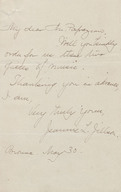 My dear Mr.
Will you kindly
order for me these two
of music.
Thanking you in advance,
I am
Very truly yours,
May 30